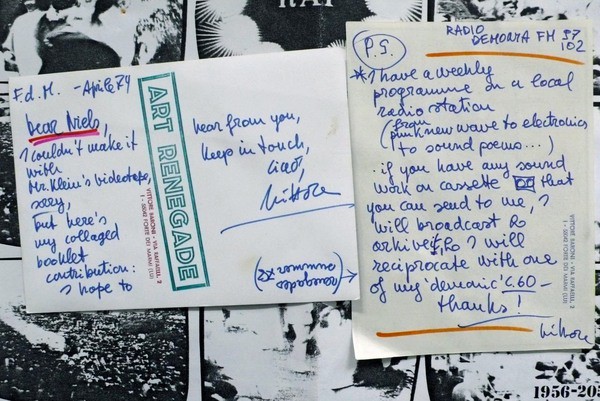 RAT
F.d.M. - April 84
Dear Niels,
I couldn't make it
with
Mr. Klein's videotape,
sorry,
but here's
my collaged
booklet
contribution:
I hope to
ART RENEGADE
VITTORE BARONI - VIA RAFFAELLI, 2
I - 55042 FORTE DEI MARMI (LU)
hear from you,
keep in touch,
ciao,
Vittore
P.S.
RADIO
DEMONIA FM 97
102
* I have a weekly
programme on a local
radio station
(from
punk new wave to electronics
to sound poems...)
..if you have any sound
work on cassette that
you can send to me, I
will broadcast &
archive it, & I will
reciprocate with one
of my 'demonic' C.60 -
thanks!
Vittore
VITTORE BARONI - VIA RAFFAELLI, 2
I - 55042 FORTE DEI MARMI (LU)
1956-20